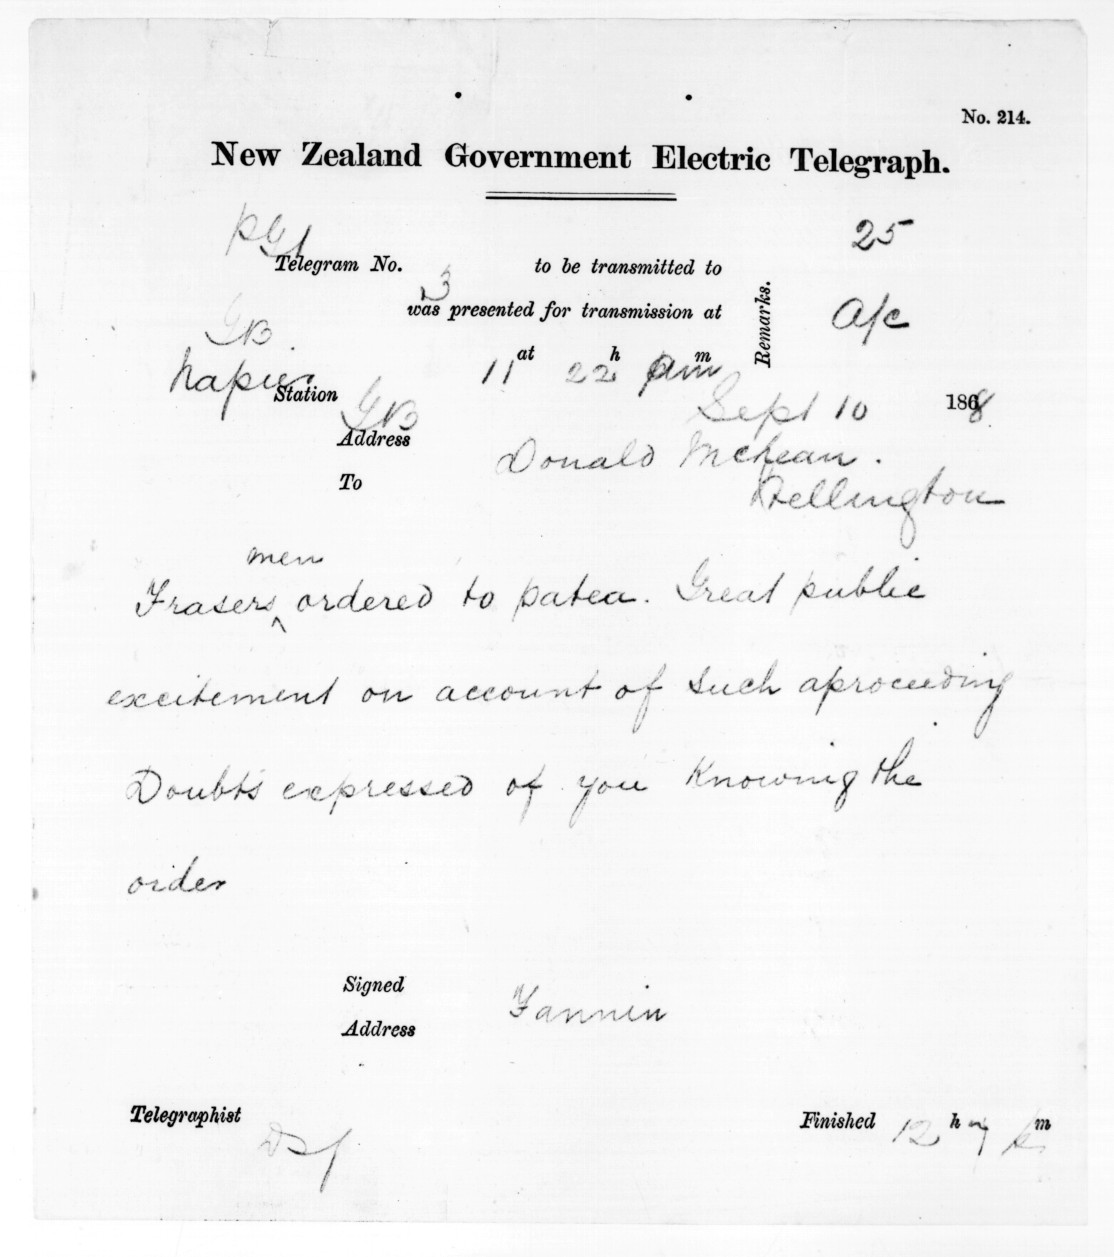 No. 214.
New Zealand Government Electric Telegraph.
25
Telegram No. to be transmitted to
3
was presented for transmission at
Remarks.
a/c
GB
Napier
Station
11 at 22 h am m
Sept 10 1868
GB
Address
Donald McLean.
To
Wellington
men
Frasers ^ ordered to patea. Great public
excitement on account of such aproceeding
Doubts expressed of you Knowing the
order
Signed
Fannin
Address
Telegraphist
Finished 12 h m